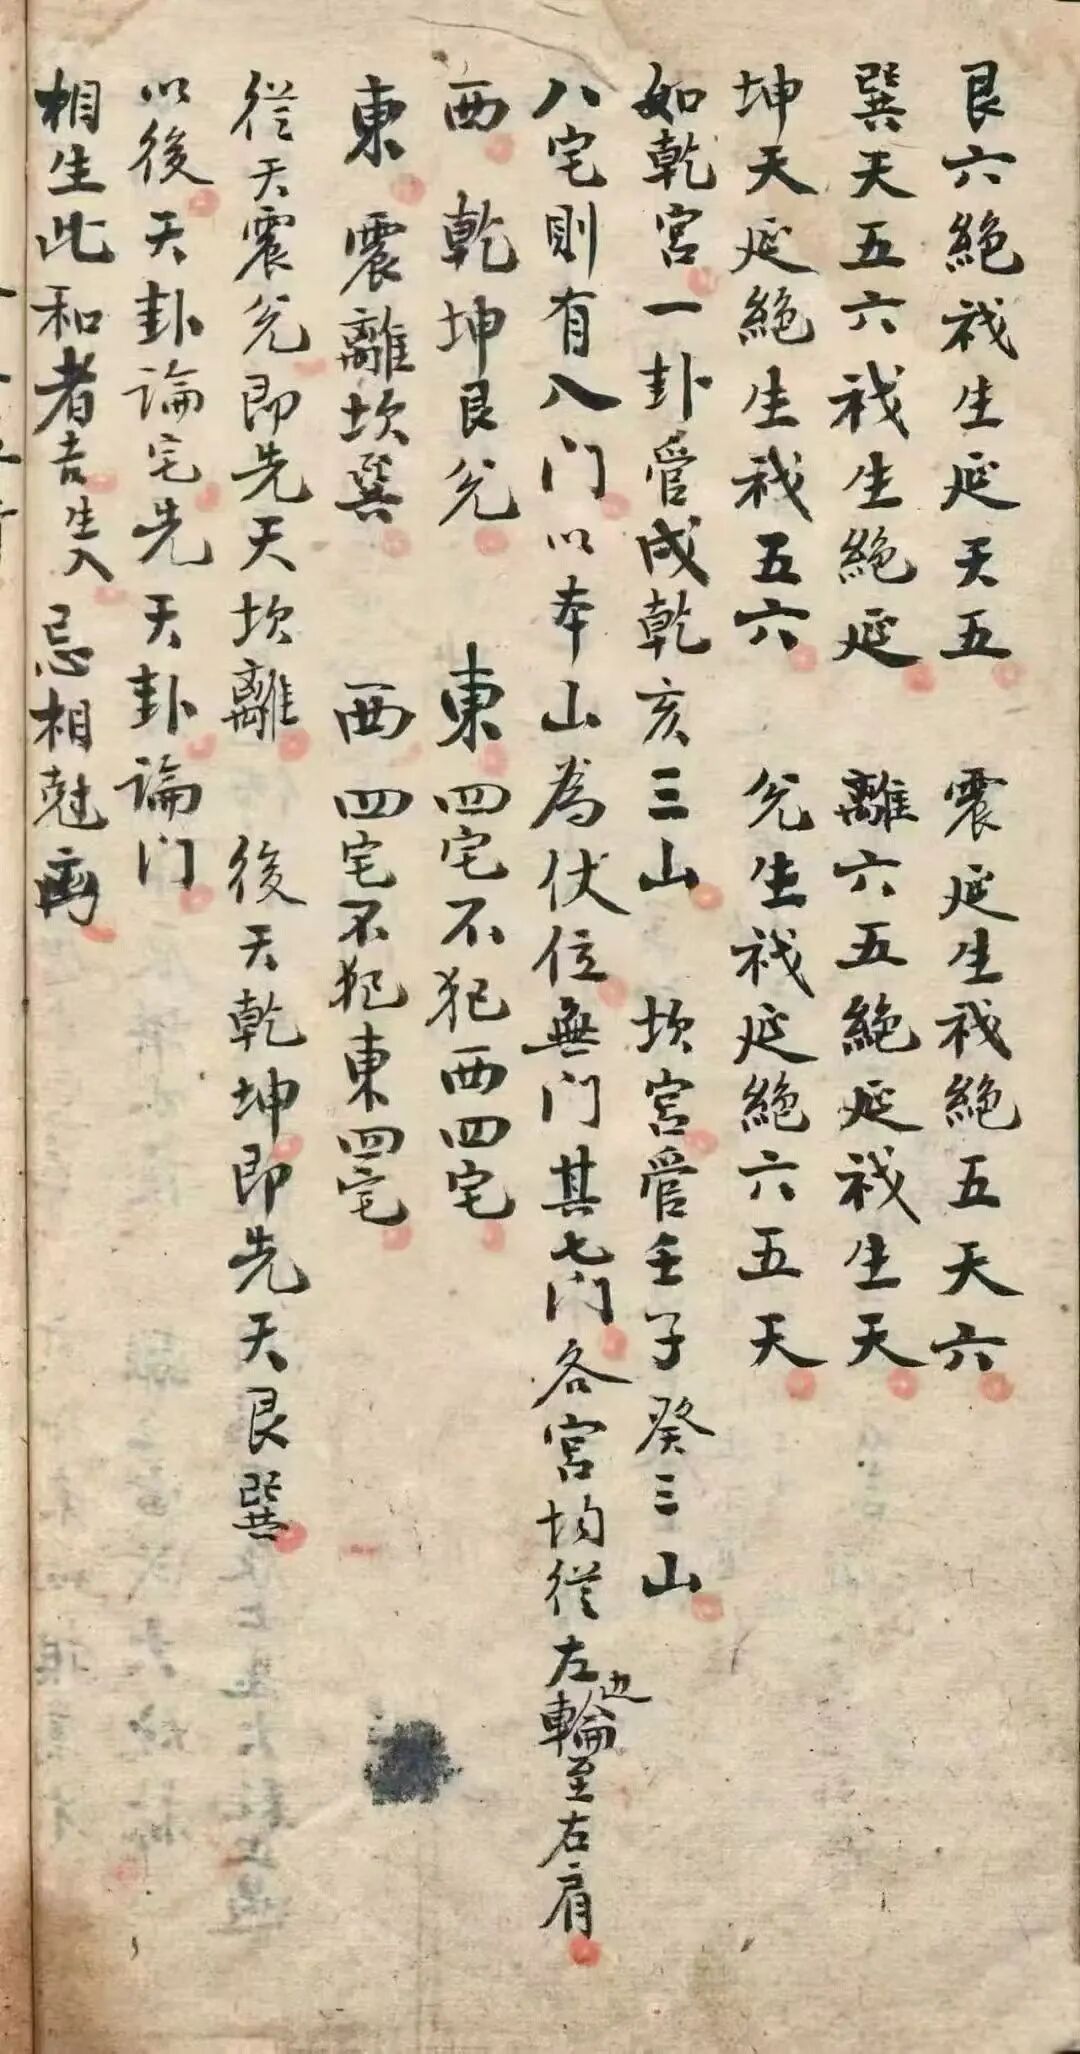 艮六絕祸生延天五 震延生祸絕五天六
巽天五六祸生絕延 離六五絕延祸生天
坤天延絕生祸五六 兊生祸延絕六五天
如乾宮一卦管戍乾亥三山 坎宮管壬子癸三山
八宅則有八门以本山為伏位無门其七门各宮均從左边輪至右肩
西 乾坤艮兊 東四宅不犯西四宅
東 震離坎巽 西四宅不犯東四宅
從天震兊即先天坎離 後天乾坤即先天艮巽
以後天卦論宅先天卦論门
相生比和者吉生入 忌相尅